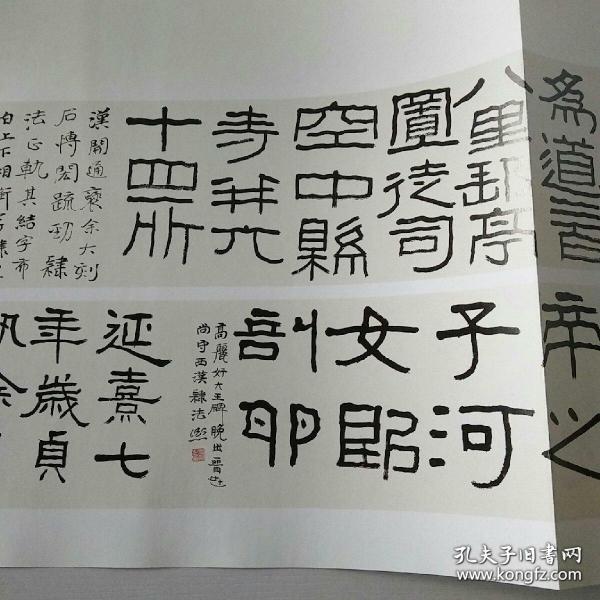 為道三百
八里郵亭
置徒司
空中縣
寺并六
十四所
漢開通褒余大刻
石博闊疏勁隸
法正軌其結字布
白上下相
帝之
子河
女郎
剖卵
高麗好大王碑晚出晋世
尚守西漢隸法熙
延熹七
年歲貞
孔夫子旧书网
www.kongfz.com